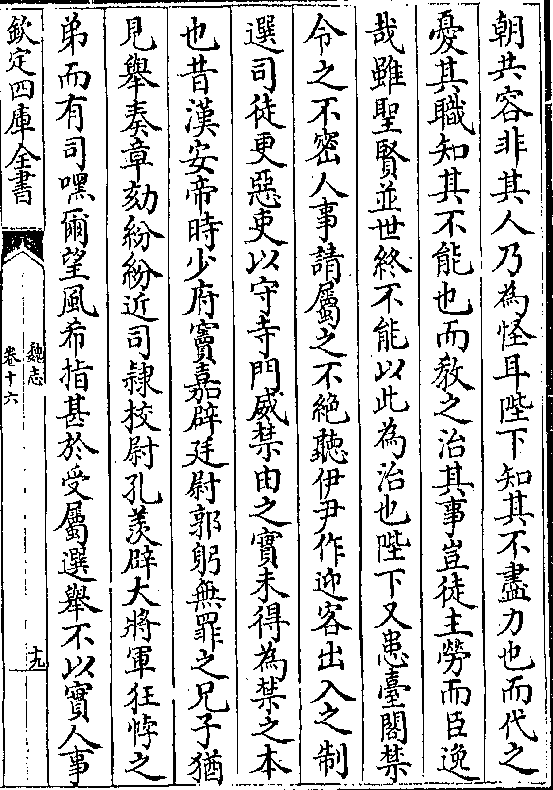 朝共容非其人乃為怪耳陛下知其不盡力也而代之
憂其職知其不能也而教之治其事豈徒主勞而臣逸
哉雖聖賢並世終不能以此為治也陛下又患臺閣禁
令之不密人事請屬之不絶聽伊尹作迎客出入之制
選司徒更惡吏以守寺門威禁由之實未得為禁之本
也昔漢安帝時少府竇嘉辟廷尉郭躬無罪之兄子猶
見舉奏章劾紛紛近司隸校尉孔羡辟大將軍狂悖之
弟而有司嘿爾望風希指甚於受屬選舉不以實人事
欽定四庫全書
魏志
卷十六
十九